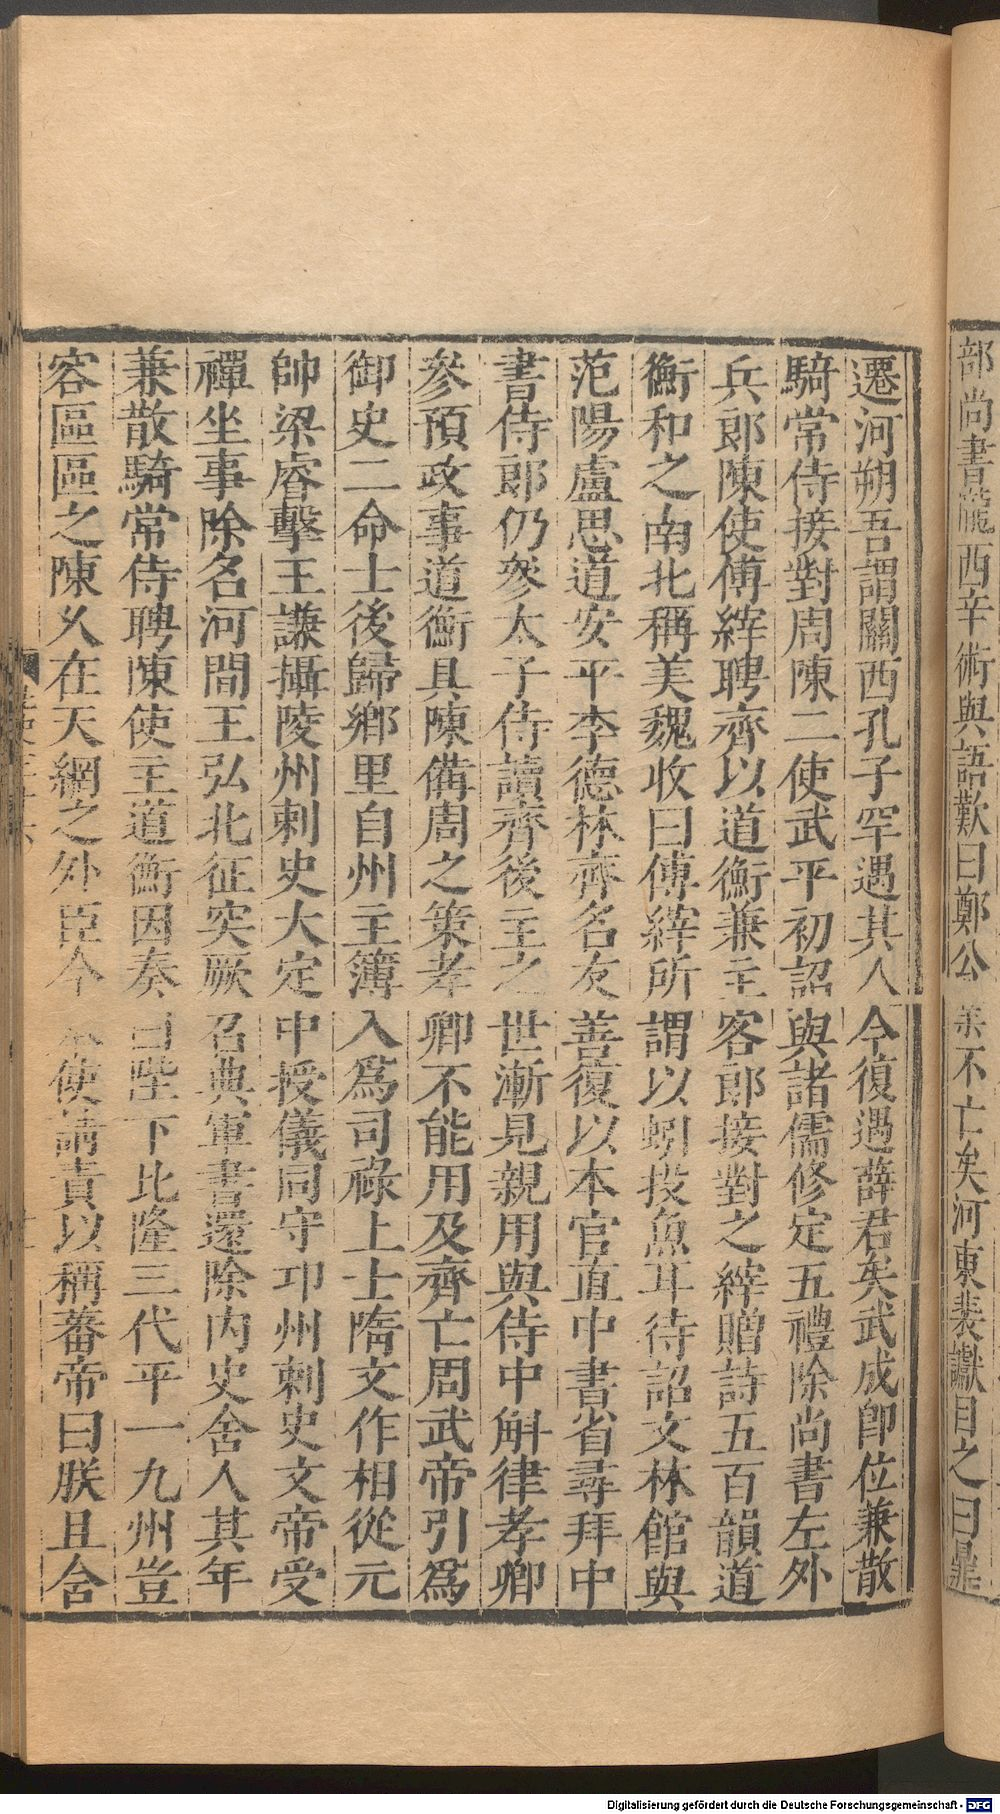 部尚書隴西辛術與語歎曰鄭公業不亡矣河東裴讞目之曰鼎
遷河朔吾謂關西孔子罕遇其人今復遇薛君矣武成即位兼散
騎常侍接對周陳二使武平初詔與諸儒修定五禮除尚書左外
兵郎陳使傅縡聘齊以道衡兼主客郎接對之縡贈詩五百韻道
衡和之南北稱美魏收曰傅縡所謂以蚓投魚耳待詔文林館與
范陽盧思道安平李德林齊名友善復以本官直中書省尋拜中
書侍郎仍參太子侍讀齊後主之世漸見親用與侍中斛律孝卿
參預政事道衡具陳備周之策孝卿不能用及齊亡周武帝引爲
御史二命士後歸鄉里自州主簿入爲司祿上士隋文作相從元
帥梁睿擊王謙攝陵州刺史大定中授儀同守卭州刺史文帝受
禪坐事除名河間王弘北征突厥召典軍書還除内史舍人其年
兼散騎常侍聘陳使主道衡因奏曰陛下比隆三代平一九州豈
容區區之陳乆在天網之外臣今
使請責以稱蕃帝曰朕且含
Digitalisierung gefördert durch die Deutsche Forschungsgemeinschaft - DFG